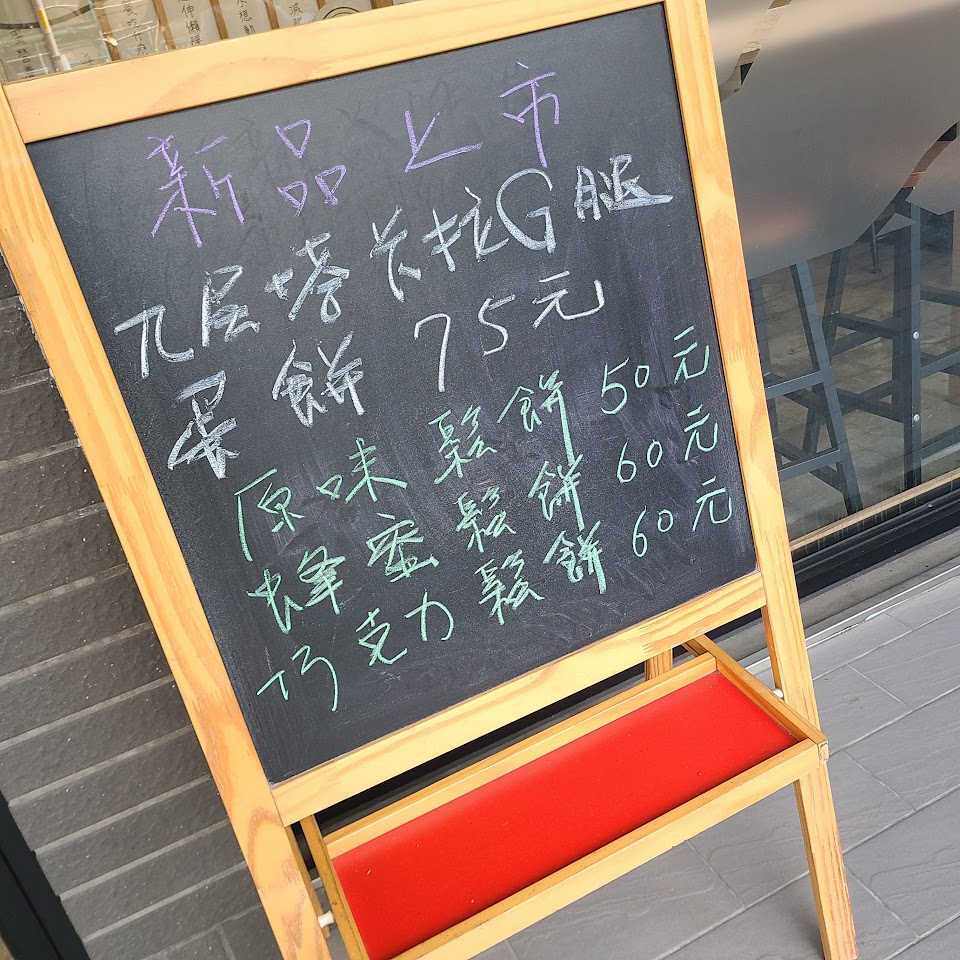 新品上市
九層塔卡拉G腿
蛋餅 75元
原味 鬆餅 50元
蜂蜜 鬆餅 60元
巧克力 鬆餅 60元